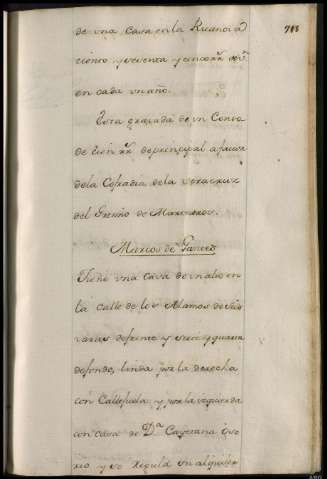 713
de una Casa en la
ciento y sesenta y cinco rr.
en cada un año.
Esta gravada de un Censo
de cien rr. de principal a favor
de la Cofradia de la Veracruz
del Gremio de Mareneros.
Marcos de
Tiene una Casa de un alto en
la calle de los Alamos de seis
varas de frente y seis y quarta
de fondo, linda por la derecha
con Callejuela, y por la izquierda
con casa de D.ª Cayetana
y se regula un alquiler